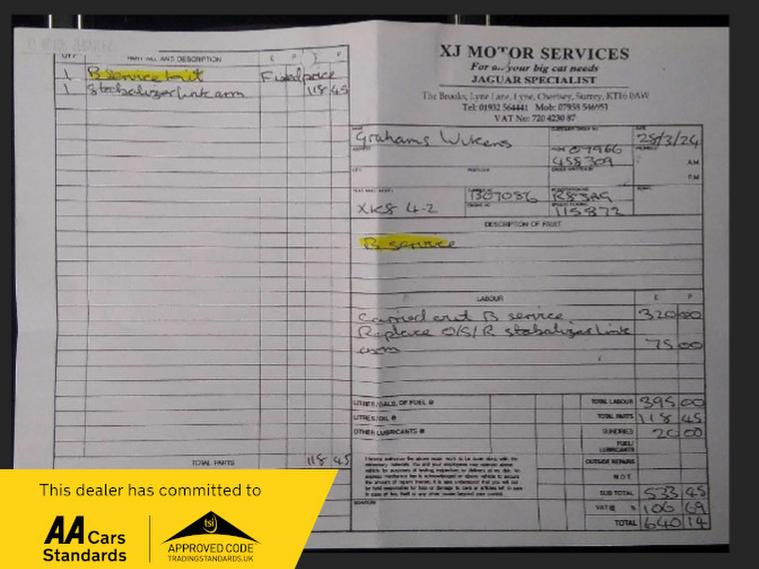 PART NO. AND DESCRIPTION £ P £ P
1 B Service kit Fixed price
1 Stobalizer link arm 118 45
TOTAL PARTS 118 45
XJ MOTOR SERVICES
For a... your big cat needs
JAGUAR SPECIALIST
The Brooks, Lyne Lane, Lyne, Chertsey, Surrey, KT16 0AW
Tel: 01932 564441 Mob: 07958 546951
VAT No: 720 4230 87
Grahams 28/3/24
07966
458309
A.M.
P.M.
XK8 4-2 B07086 R83AG
115872
DESCRIPTION OF FAULT
B service
LABOUR £ P
Carried out B service 320 00
Replace O/S/R stobalizer link
arm 75 00
LITRES/GALS. OF FUEL @ TOTAL LABOUR 395 00
LITRES/OIL @ TOTAL PARTS 118 45
OTHER LUBRICANTS @ SUNDRIES 20 00
FUEL/
LUBRICANTS
OUTSIDE REPAIRS
M.O.T.
SUB TOTAL 533 45
VAT @ % 106 69
TOTAL 640 14
This dealer has committed to
AA Cars
Standards
tsi
APPROVED CODE
TRADINGSTANDARDS.UK